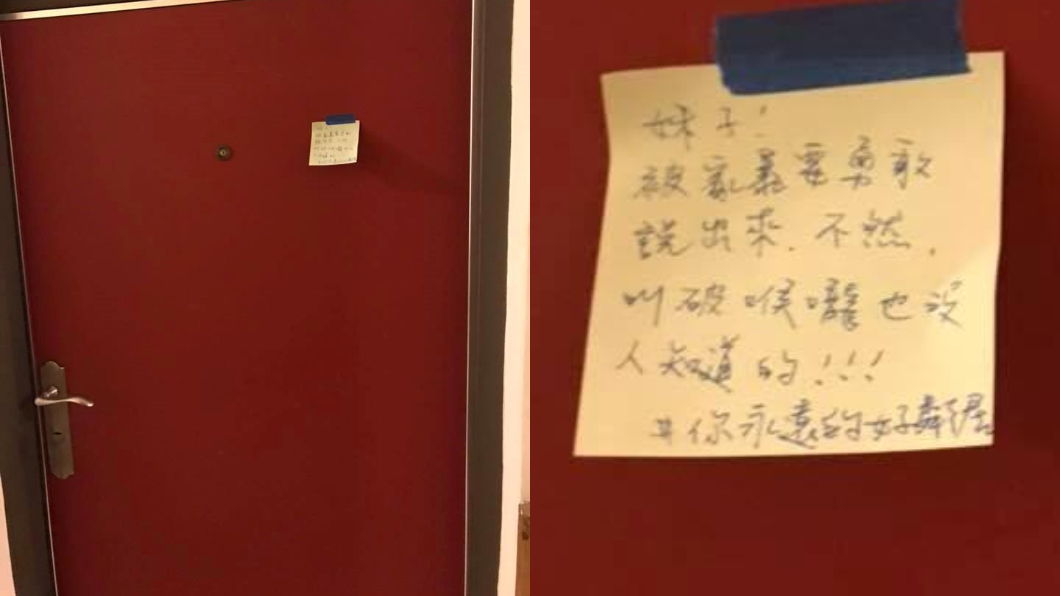 妹子!
被家暴要勇敢
說出來.不然,
叫破喉嚨也沒
人知道的!!!
#你永遠的好舞伴